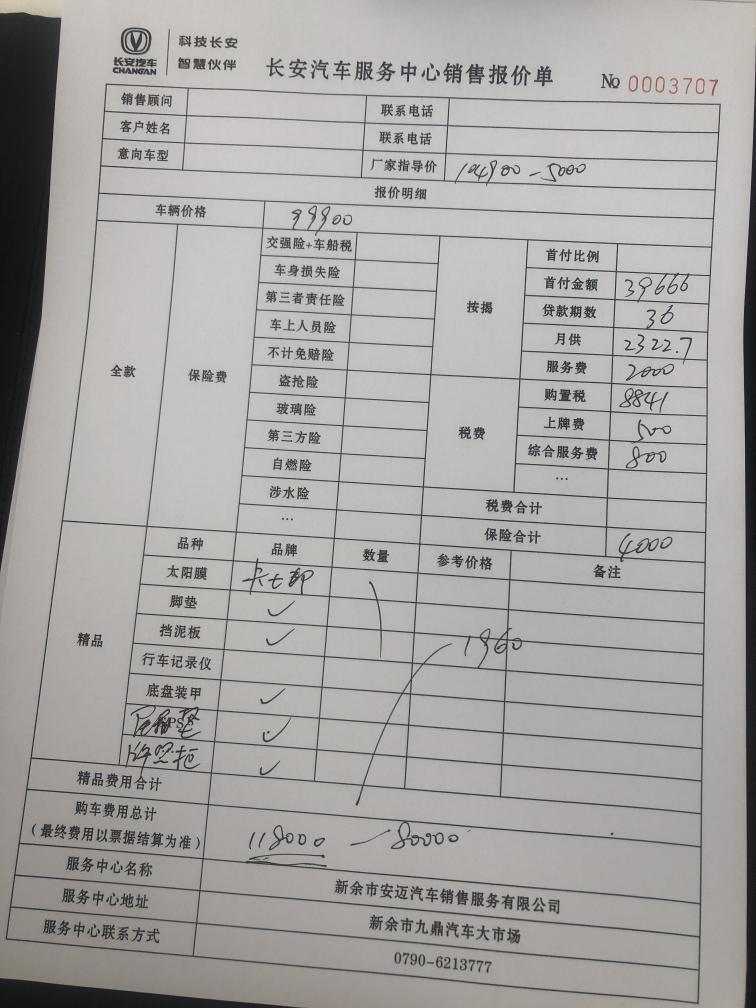 长安汽车
CHANGAN
科技长安
智慧伙伴
长安汽车服务中心销售报价单
No 0003707
销售顾问 联系电话
客户姓名 联系电话
意向车型 厂家指导价 104900-5000
报价明细
车辆价格 99900
全款
保险费
交强险+车船税
车身损失险
第三者责任险
车上人员险
不计免赔险
盗抢险
玻璃险
第三方险
自燃险
涉水险
...
按揭
首付比例
首付金额 39666
贷款期数 36
月供 2322.7
服务费 2000
税费
购置税 8841
上牌费 500
综合服务费 800
...
税费合计
保险合计 4000
精品
品种 品牌 数量 参考价格 备注
太阳膜 卡七郎
脚垫 ✓
挡泥板 ✓
1960
行车记录仪
底盘装甲 ✓
垫 ✓
牌照框 ✓
精品费用合计
购车费用总计
(最终费用以票据结算为准) 118000 - 80000
服务中心名称 新余市安迈汽车销售服务有限公司
服务中心地址 新余市九鼎汽车大市场
服务中心联系方式 0790-6213777